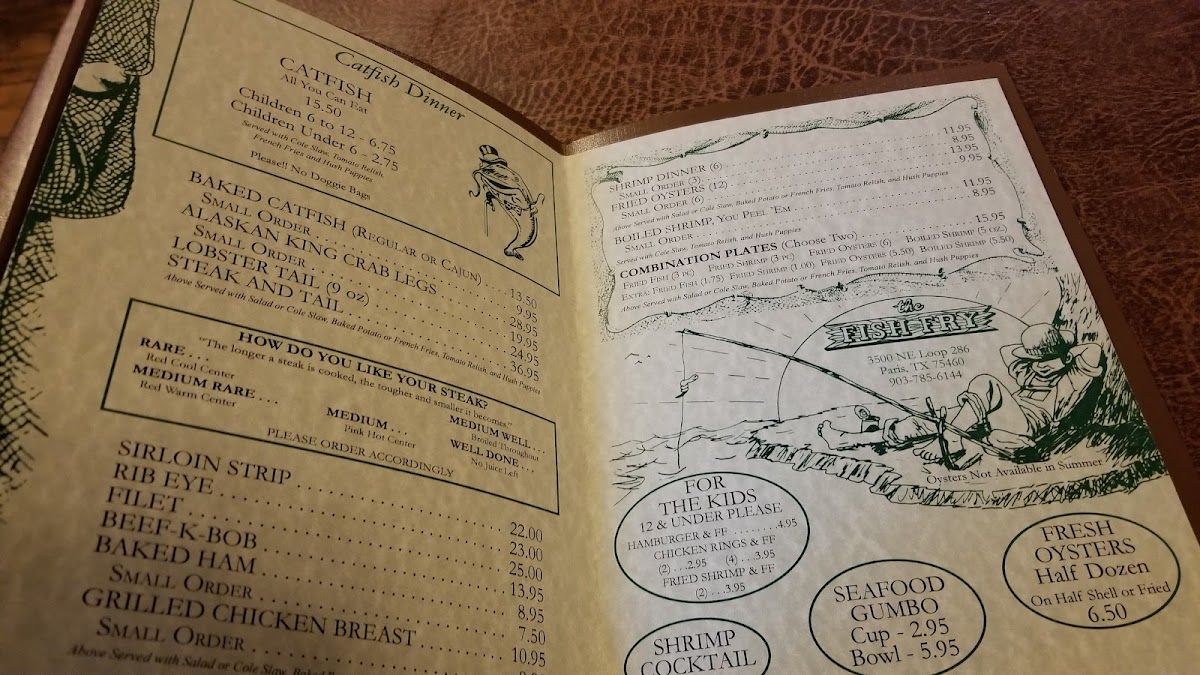 Catfish Dinner
CATFISH
All You Can Eat
15.50
Children 6 to 12 - 6.75
Children Under 6 - 2.75
Served with Cole Slaw, Tomato Relish,
French Fries and Hush Puppies
Please!! No Doggie Bags
BAKED CATFISH (Regular or Cajun) . . . . 13.50
Small Order . . . . 9.95
ALASKAN KING CRAB LEGS . . . . 28.95
Small Order . . . . 19.95
LOBSTER TAIL (9 oz) . . . . 24.95
STEAK AND TAIL . . . . 36.95
Above Served with Salad or Cole Slaw, Baked Potato or French Fries, Tomato Relish, and Hush Puppies
HOW DO YOU LIKE YOUR STEAK?
"The longer a steak is cooked, the tougher and smaller it becomes."
RARE . . .
Red Cool Center
MEDIUM RARE . . .
Red Warm Center
MEDIUM . . .
Pink Hot Center
MEDIUM WELL . . .
Broiled Throughout
WELL DONE . . .
No Juice Left
PLEASE ORDER ACCORDINGLY
SIRLOIN STRIP . . . . 22.00
RIB EYE . . . . 23.00
FILET . . . . 25.00
BEEF-K-BOB . . . . 13.95
BAKED HAM . . . . 8.95
Small Order . . . . 7.50
GRILLED CHICKEN BREAST . . . . 10.95
Small Order . . . .
Above Served with Salad or Cole Slaw, Baked
SHRIMP DINNER (6) . . . . 11.95
Small Order (3) . . . . 8.95
FRIED OYSTERS (12) . . . . 13.95
Small Order (6) . . . . 9.95
Above Served with Salad or Cole Slaw, Baked Potato or French Fries, Tomato Relish, and Hush Puppies
BOILED SHRIMP, You Peel 'Em . . . . 11.95
Small Order . . . . 8.95
Served with Cole Slaw, Tomato Relish, and Hush Puppies
COMBINATION PLATES (Choose Two) . . . . 15.95
Fried Fish (3 pc) Fried Shrimp (3 pc) Fried Oysters (6) Boiled Shrimp (5 oz.)
Extra: Fried Fish (1.75) Fried Shrimp (1.00) Fried Oysters (5.50) Boiled Shrimp (5.50)
Above Served with Salad or Cole Slaw, Baked Potato or French Fries, Tomato Relish, and Hush Puppies
the
FISH FRY
3500 NE Loop 286
Paris, TX 75460
903-785-6144
Oysters Not Available in Summer
FOR
THE KIDS
12 & UNDER PLEASE
HAMBURGER & FF ........4.95
CHICKEN RINGS & FF
(2) ...2.95 (4) ...3.95
FRIED SHRIMP & FF
(2) ...3.95
SHRIMP
COCKTAIL
SEAFOOD
GUMBO
Cup - 2.95
Bowl - 5.95
FRESH
OYSTERS
Half Dozen
On Half Shell or Fried
6.50